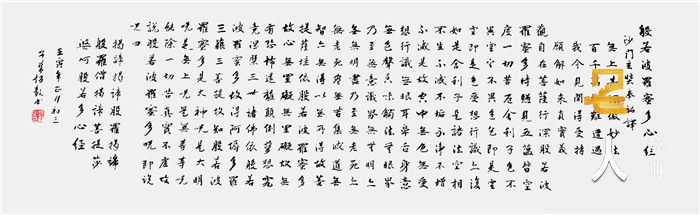 般若波羅蜜多心经
沙门玄奘奉詔譯
無上甚深微妙法
百千萬劫難遭遇
我今見聞得受持
願解如来真實義
觀自在菩薩行深般若波
羅蜜多時照見五蕴皆空
度一切苦厄舍利子色不
異空空不異色色即是空
空即是色受想行識亦復
如是舍利子是諸法空相
不生不滅不垢不净不增
不减是故空中無色無受
想行識無眼耳鼻舌身意
無色聲香味觸法無眼界
乃至無意識界無無明亦
無無明盡乃至無老死亦
無老死盡無苦集滅道無
智亦無得以無所得故菩
提薩埵依般若波羅蜜多
故心無罣礙無罣礙故無
有恐怖遠離顛倒夢想究
竟涅槃三世諸佛依般若
波羅蜜多故得阿耨多羅
三藐三菩提故知般若波
羅蜜多是大神咒是大明
咒是無上咒是無等等咒
能除一切苦真實不虛故
說般若波羅蜜多咒即說
咒曰
揭諦揭諦般羅揭諦
般羅僧揭諦菩提莎
婆訶般若多心經
壬寅年正月初三
人